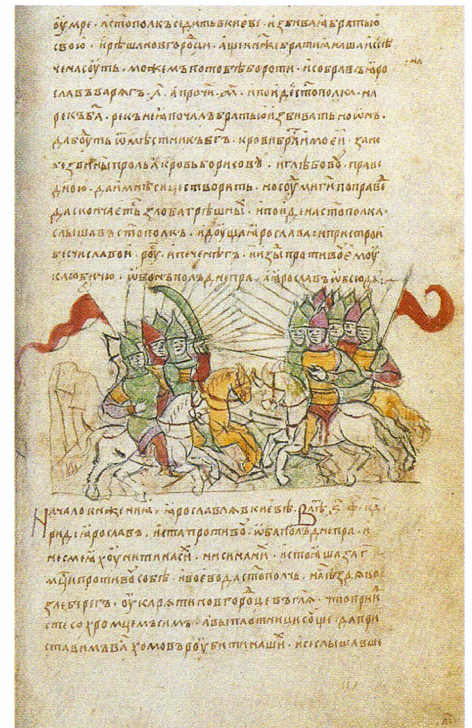 оумре · стополкъ седить в киеве · избиваꙗ братью
свою · и рѣша новгородци · аще кнѧже братиꙗ наша исѣ
чена соуть · можемъ по тобѣ бороти · и собравъ ꙗро
славъ варѧгъ · а҃ · а прочи · м҃ · и поиде стополка · на
рекъ ба · рекъ не ꙗ почалъ братью избивать но онъ ·
да боуть ѿместникъ бг҃ъ · крови моеи · зане
же без вины пролиꙗ кровь борисовꙋ · и глѣбовоу · праве
дною · да и мнѣ сице створить · но соуди ми ги по праве
да скончаеть злоба грѣшны · и поиде на стополка ·
слышавъ стополкъ · идоуща ꙗрослава · и пристрои
бесчисла вои · роу · и печенѣгъ · изыи противоу емоу
к любичю · ѡбонъ полъ днепра · а ꙗрославъ ѡбсюдꙋ
Начало кнѧжениꙗ · ꙗрославлѧ в киевѣ · В лѣ · ѕ҃ · ф · кд
приде ꙗрославъ · и ста противоу · ѡба полъ днепра · и
не смеꙗхоу ни ти наси · ни си нани · и стоꙗша за г
мци противоу собѣ · и воевода стополчь · наѣздꙗ во
зле берегъ · оукарꙗти новгородце гл҃ꙗ · что прии
сте со хромцемъ симъ · а вы плотници соуще · да при
ставимъ вы хоромовъ роубити наши · и се слышавше